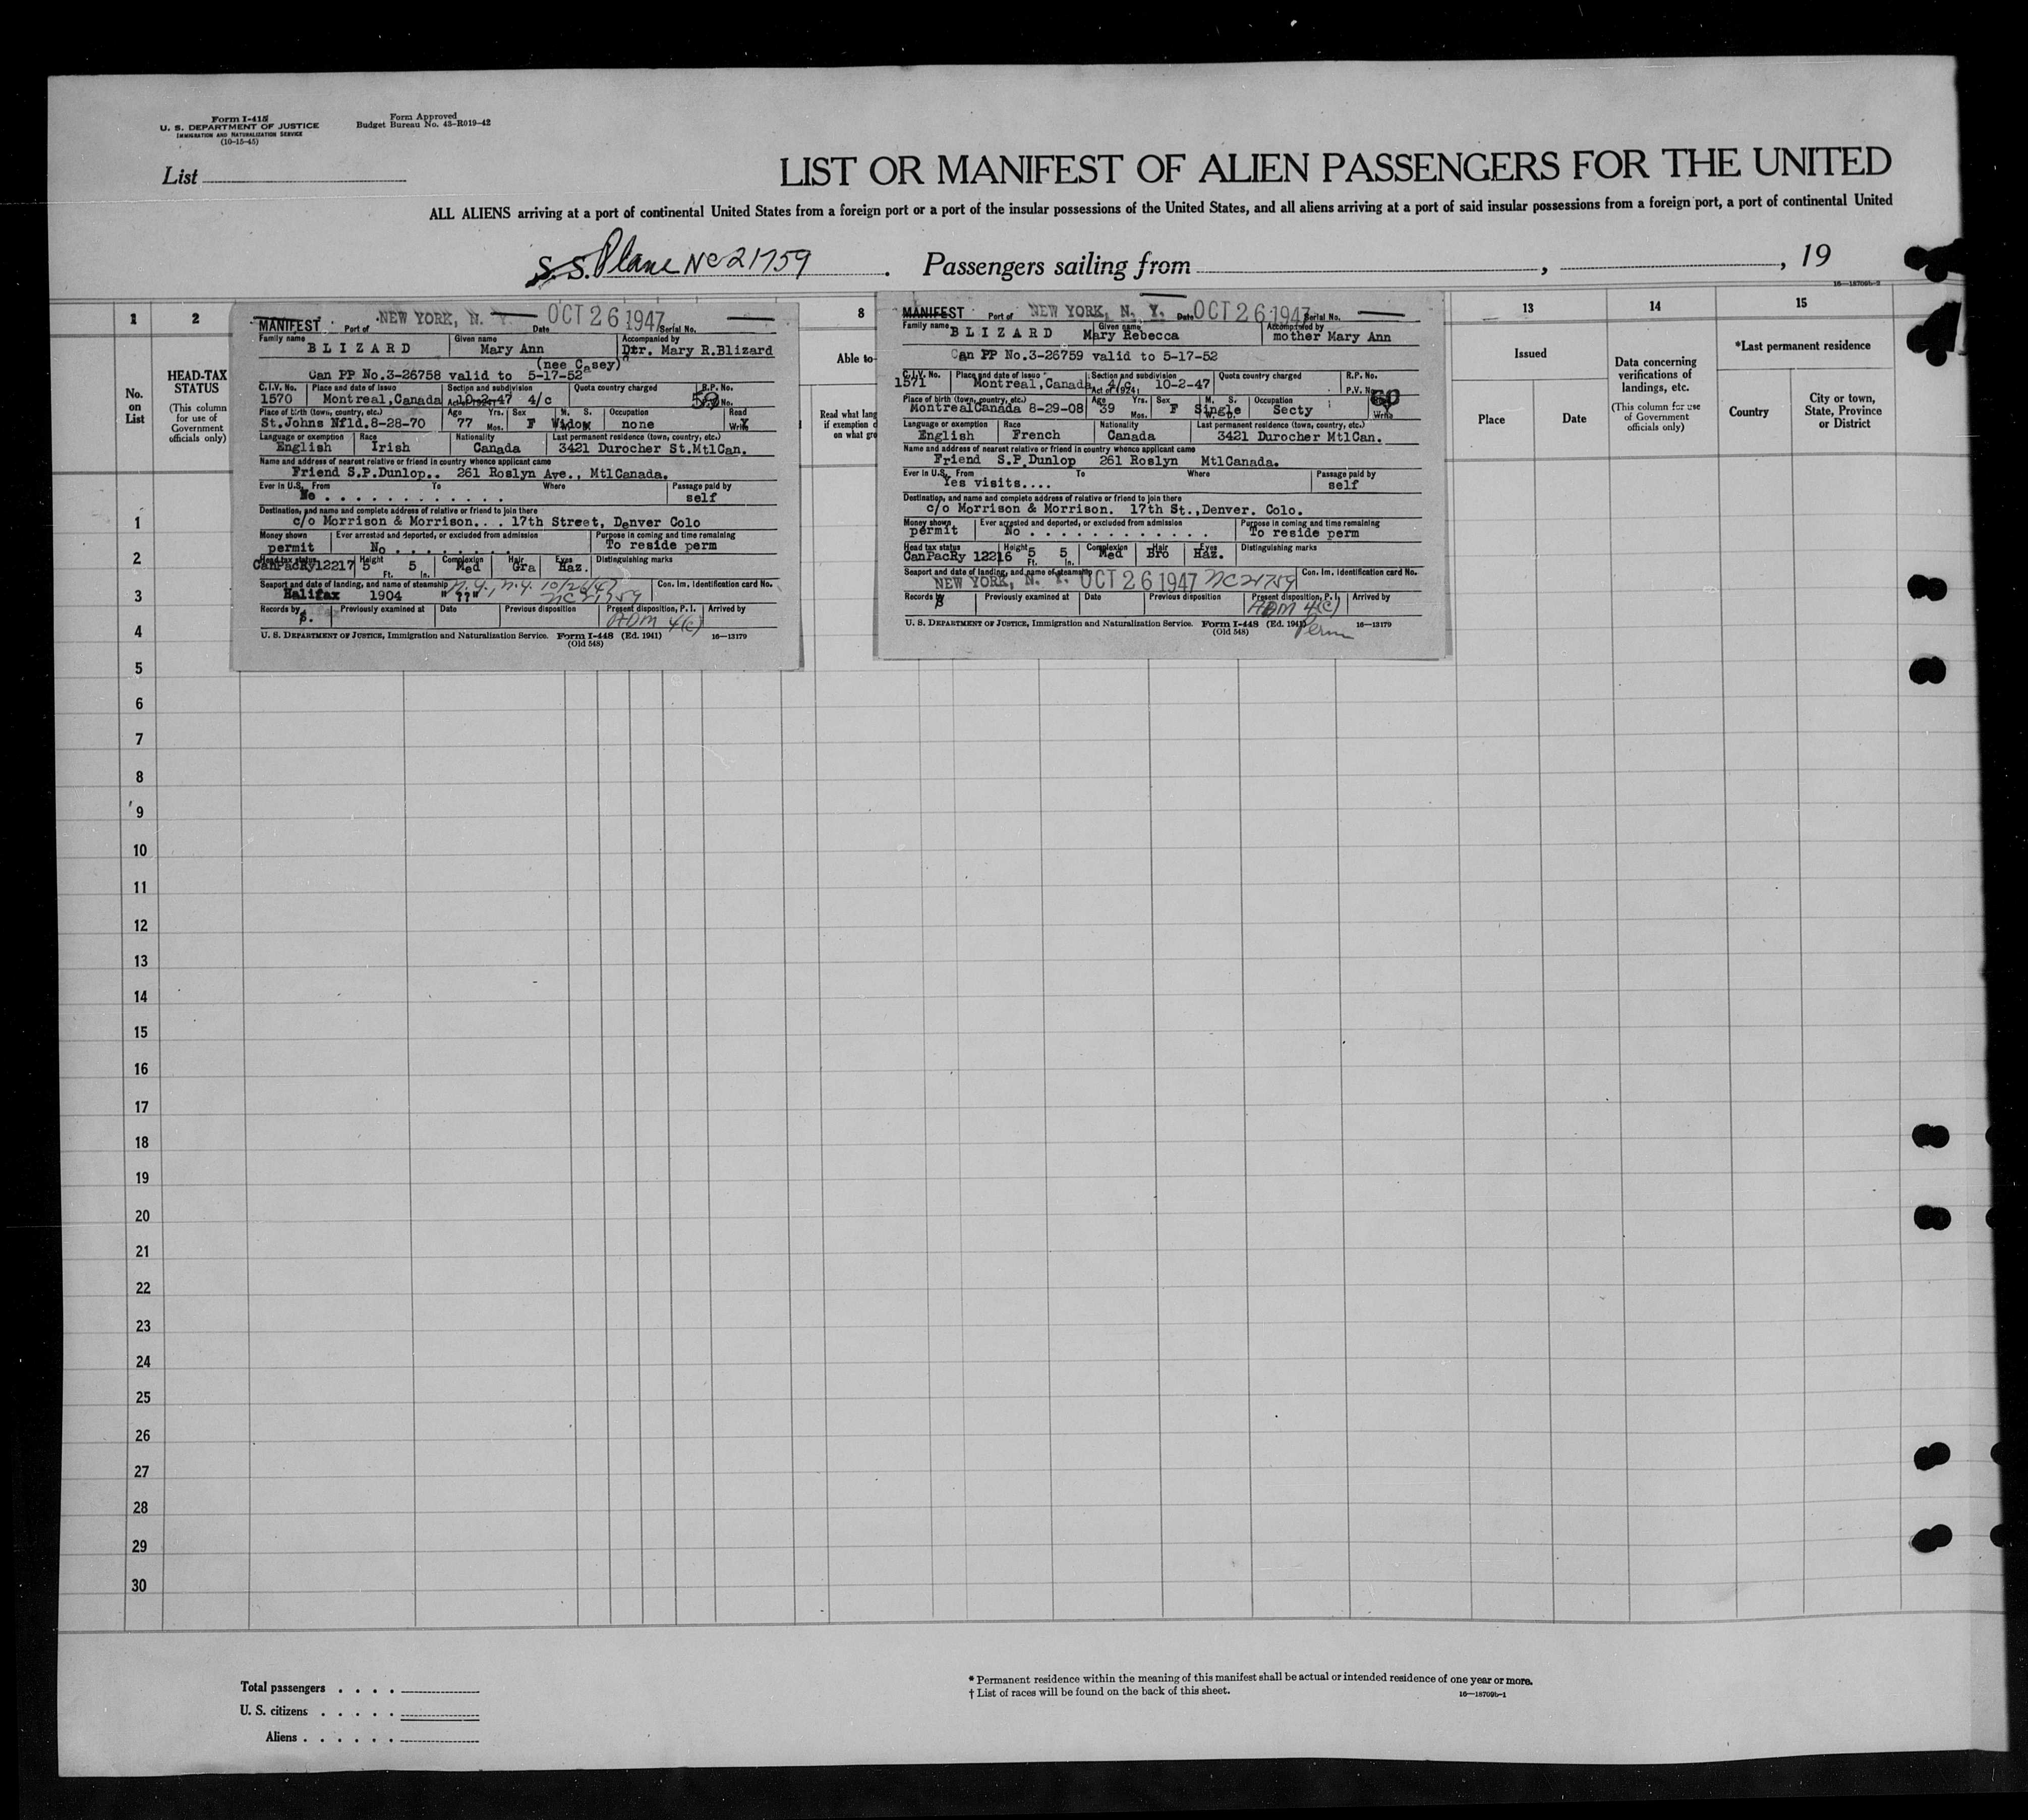 Form I-415
U. S. DEPARTMENT OF JUSTICE
IMMIGRATION AND NATURALIZATION SERVICE
(10-15-45)
Form Approved
Budget Bureau No. 43-R019-42
List
LIST OR MANIFEST OF ALIEN PASSENGERS FOR THE UNITED
ALL ALIENS arriving at a port of continental United States from a foreign port or a port of the insular possessions of the United States, and all aliens arriving at a port of said insular possessions from a foreign port, a port of continental United
S. S. Plane NC 21759. Passengers sailing from , , 19
16—18709b-2
1 2 8 13 14 15
No. on List
HEAD-TAX STATUS
(This column for use of Government officials only)
Able to
Read what lang
if exemption c
on what gro
Issued
Place Date
Data concerning verifications of landings, etc.
(This column for use of Government officials only)
*Last permanent residence
Country
City or town, State, Province or District
MANIFEST Port of NEW YORK, N. Y. Date OCT 26 1947 Serial No.
Family name Given name Accompanied by
BLIZARD Mary Ann Dtr. Mary R.Blizard
(nee Casey)
Can PP No.3-26758 valid to 5-17-52
C.I.V. No. Place and date of issue Section and subdivision Quota country charged R.P. No.
1570 Montreal,Canada 10-2-47 4/c
Place of birth (town, country, etc.) Age Yrs. Sex M. S. Occupation Read
St.Johns Nfld.8-28-70 77 Mos. F Widow none Write
Language or exemption Race Nationality Last permanent residence (town, country, etc.)
English Irish Canada 3421 Durocher St.MtlCan.
Name and address of nearest relative or friend in country whence applicant came
Friend S.P.Dunlop.. 261 Roslyn Ave., MtlCanada.
Ever in U.S. From To Where Passage paid by
No . . . . . . . . . . . . self
Destination, and name and complete address of relative or friend to join there
c/o Morrison & Morrison... 17th Street, Denver Colo
Money shown Ever arrested and deported, or excluded from admission Purpose in coming and time remaining
permit No . . . . . . . . To reside perm
Head tax status Height Complexion Hair Eyes Distinguishing marks
CanPacRy12217 5 Ft. 5 In. Med Gra Haz.
Seaport and date of landing, and name of steamship Con. Im. Identification card No.
Halifax 1904 "??" N.Y., N.Y. 10/26/47 NC21759
Records by Previously examined at Date Previous disposition Present disposition, P. I. Arrived by
ADM 4(c)
U. S. DEPARTMENT OF JUSTICE, Immigration and Naturalization Service. Form I-448 (Ed. 1941) 16—13179
(Old 548)
MANIFEST Port of NEW YORK, N. Y. Date OCT 26 1947 Serial No.
Family name Given name Accompanied by
BLIZARD Mary Rebecca mother Mary Ann
Can PP No.3-26759 valid to 5-17-52
C.I.V. No. Place and date of issue Section and subdivision Quota country charged R.P. No.
1571 Montreal,Canada 4/c Act of 1924 10-2-47 P.V. No.
Place of birth (town, country, etc.) Age Yrs. Sex M. S. Occupation
MontrealCanada 8-29-08 39 Mos. F Single Secty Write
Language or exemption Race Nationality Last permanent residence (town, country, etc.)
English French Canada 3421 Durocher MtlCan.
Name and address of nearest relative or friend in country whence applicant came
Friend S.P.Dunlop 261 Roslyn MtlCanada.
Ever in U.S. From To Where Passage paid by
Yes visits.... self
Destination, and name and complete address of relative or friend to join there
c/o Morrison & Morrison. 17th St.,Denver. Colo.
Money shown Ever arrested and deported, or excluded from admission Purpose in coming and time remaining
permit No . . . . . . . . . . . . To reside perm
Head tax status Height Complexion Hair Eyes Distinguishing marks
CanPacRy 12216 5 5 Med Bro Haz.
Seaport and date of landing, and name of steamship Con. Im. Identification card No.
NEW YORK, N. Y. OCT 26 1947 NC21759
Records by Previously examined at Date Previous disposition Present disposition, P. I. Arrived by
ADM 4(c)
Perm
U. S. DEPARTMENT OF JUSTICE, Immigration and Naturalization Service. Form I-448 (Ed. 1941) 16—13179
(Old 548)
1
2
3
4
5
6
7
8
9
10
11
12
13
14
15
16
17
18
19
20
21
22
23
24
25
26
27
28
29
30
Total passengers . . . .
U. S. citizens . . . . .
Aliens . . . . . .
* Permanent residence within the meaning of this manifest shall be actual or intended residence of one year or more.
† List of races will be found on the back of this sheet.
16—18709b-1